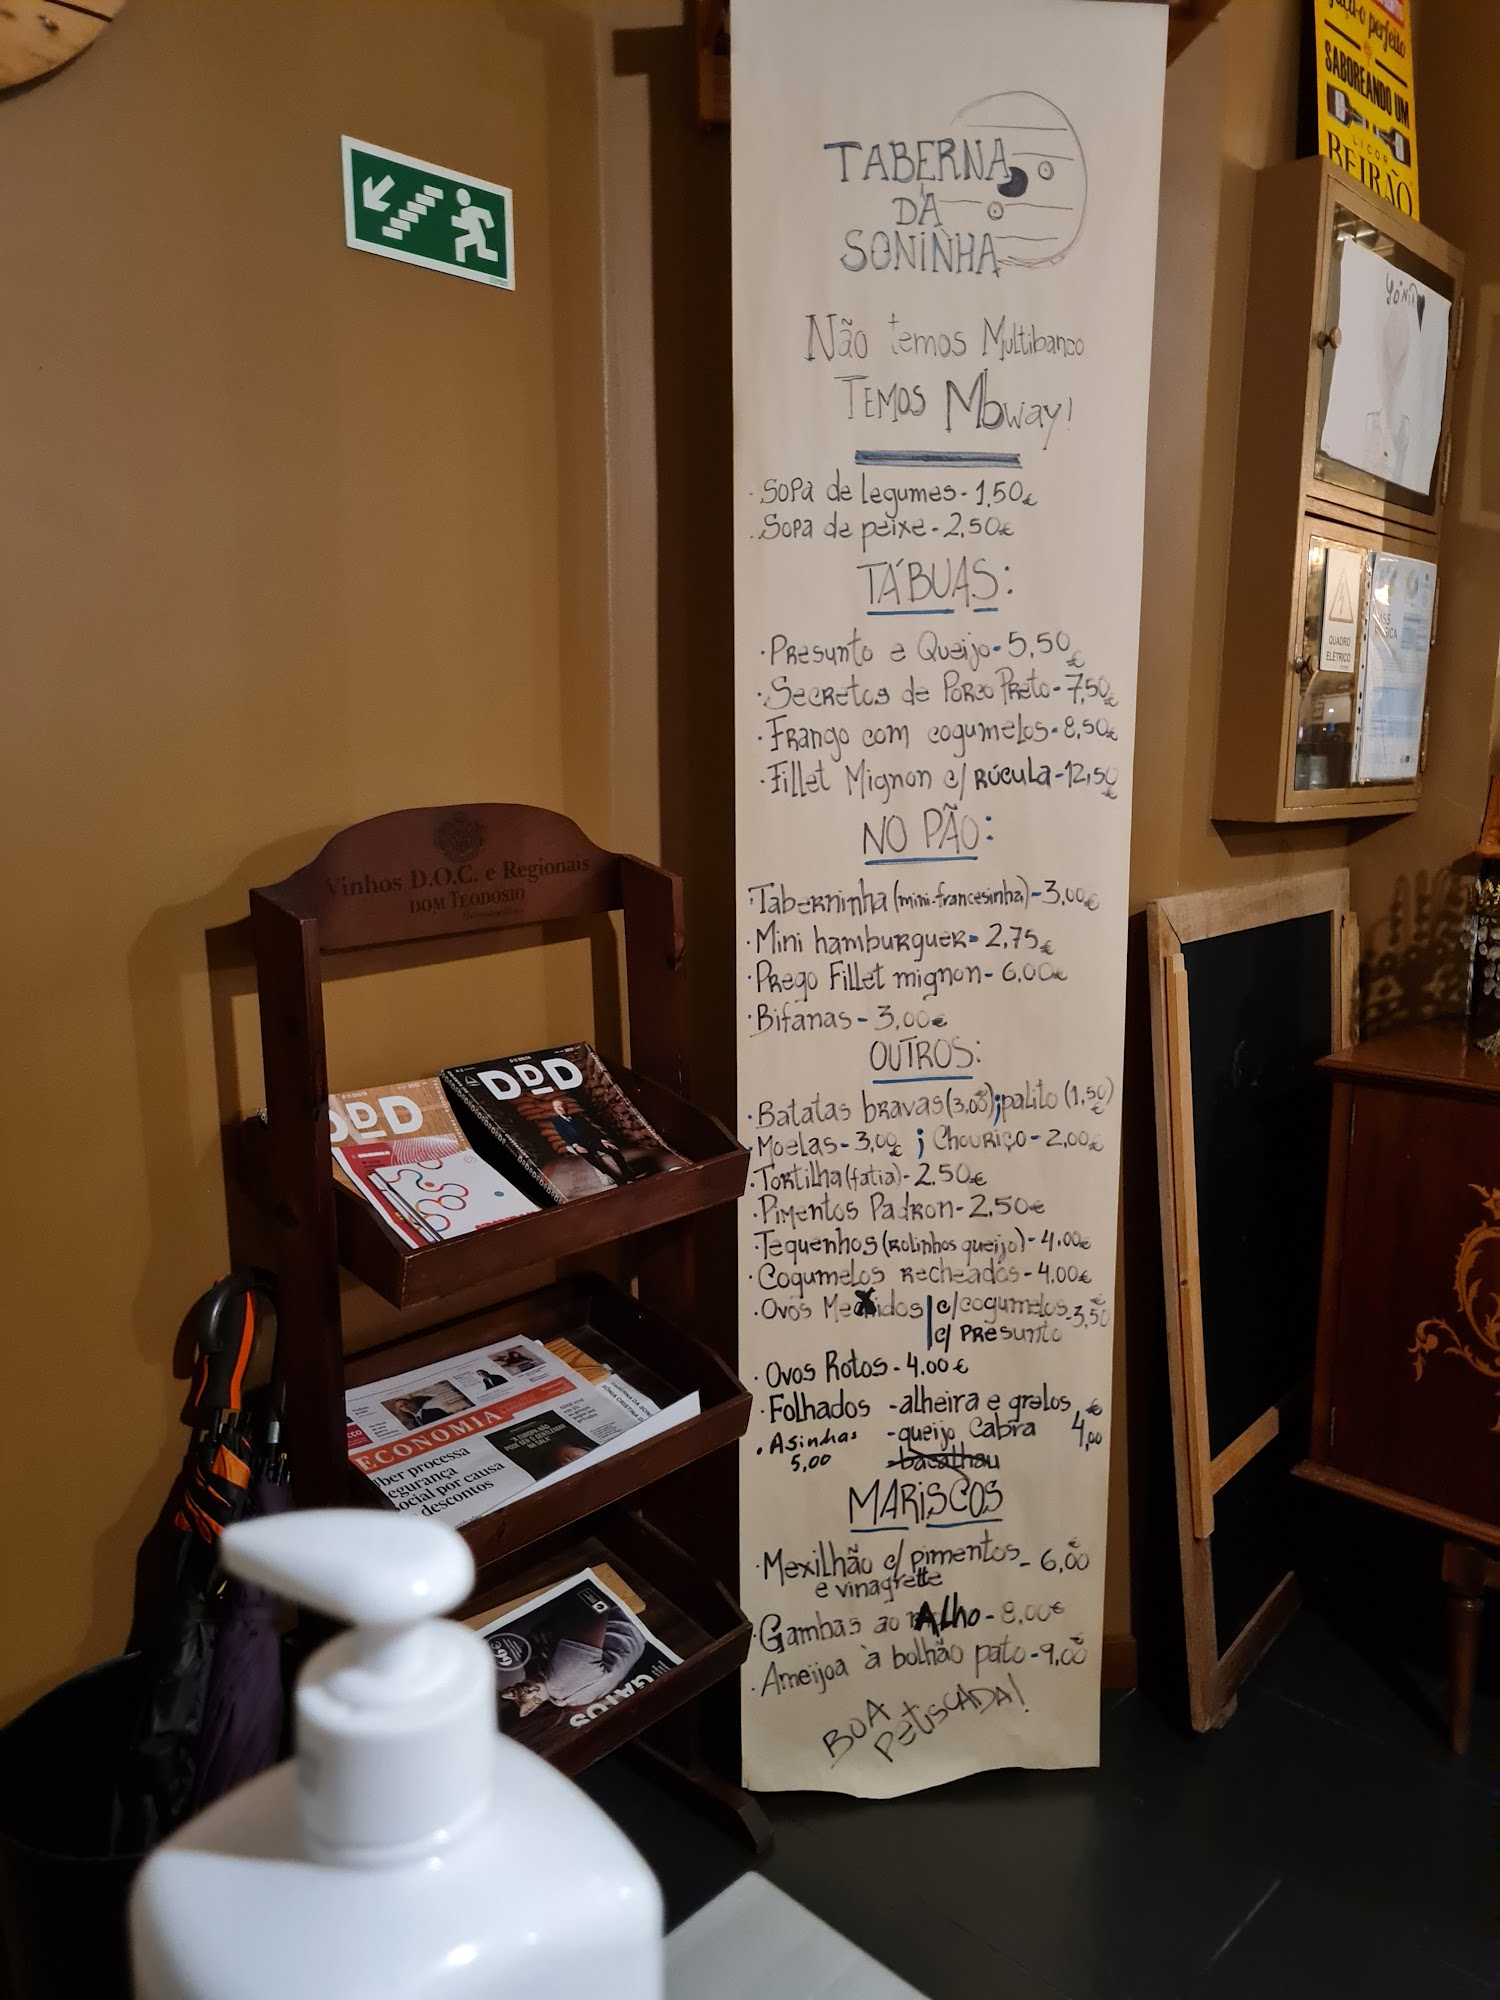 TABERNA
DA
SONINHA
Não temos Multibanco
TEMOS Mbway!
· Sopa de legumes - 1,50€
· Sopa de peixe - 2,50€
TÁBUAS:
· Presunto e Queijo - 5,50€
· Secretos de Porco Preto - 7,50€
· Frango com cogumelos - 8,50€
· Fillet Mignon c/ Rúcula - 12,50€
NO PÃO:
· Taberninha (mini-francesinha) - 3,00€
· Mini hamburguer - 2,75€
· Prego Fillet mignon - 6,00€
· Bifanas - 3,00€
OUTROS:
· Batatas bravas (3,00€); palito (1,50€)
· Moelas - 3,00€ ; Chouriço - 2,00€
· Tortilha (fatia) - 2,50€
· Pimentos Padron - 2,50€
· Tequenhos (Rolinhos queijo) - 4,00€
· Cogumelos Recheados - 4,00€
· Ovos Mexidos | c/ cogumelos - 3,50€
c/ Presunto
· Ovos Rotos - 4.00€
· Folhados - alheira e grelos
- queijo Cabra 4,00€
· Asinhas 5,00
bacalhau
MARISCOS
· Mexilhão c/ pimentos - 6,00€
e vinagrette
· Gambas ao Alho - 8,00€
· Ameijoa à bolhão pato - 9,00€
BOA
PETISCADA!
SABOREANDO UM
LICOR
BEIRÃO
QUADRO
ELÉTRICO
Vinhos D.O.C. e Regionais
DOM TEODOSIO
DDD
DDD
ECONOMIA
GATOS